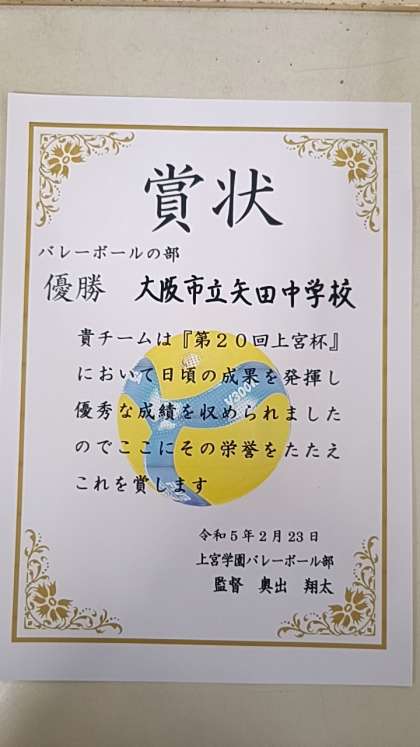 賞状
バレーボールの部
優勝 大阪市立矢田中学校
貴チームは『第20回上宮杯』
において日頃の成果を発揮し
優秀な成績を収められました
のでここにその栄誉をたたえ
これを賞します
令和5年2月23日
上宮学園バレーボール部
監督 奥出 翔太